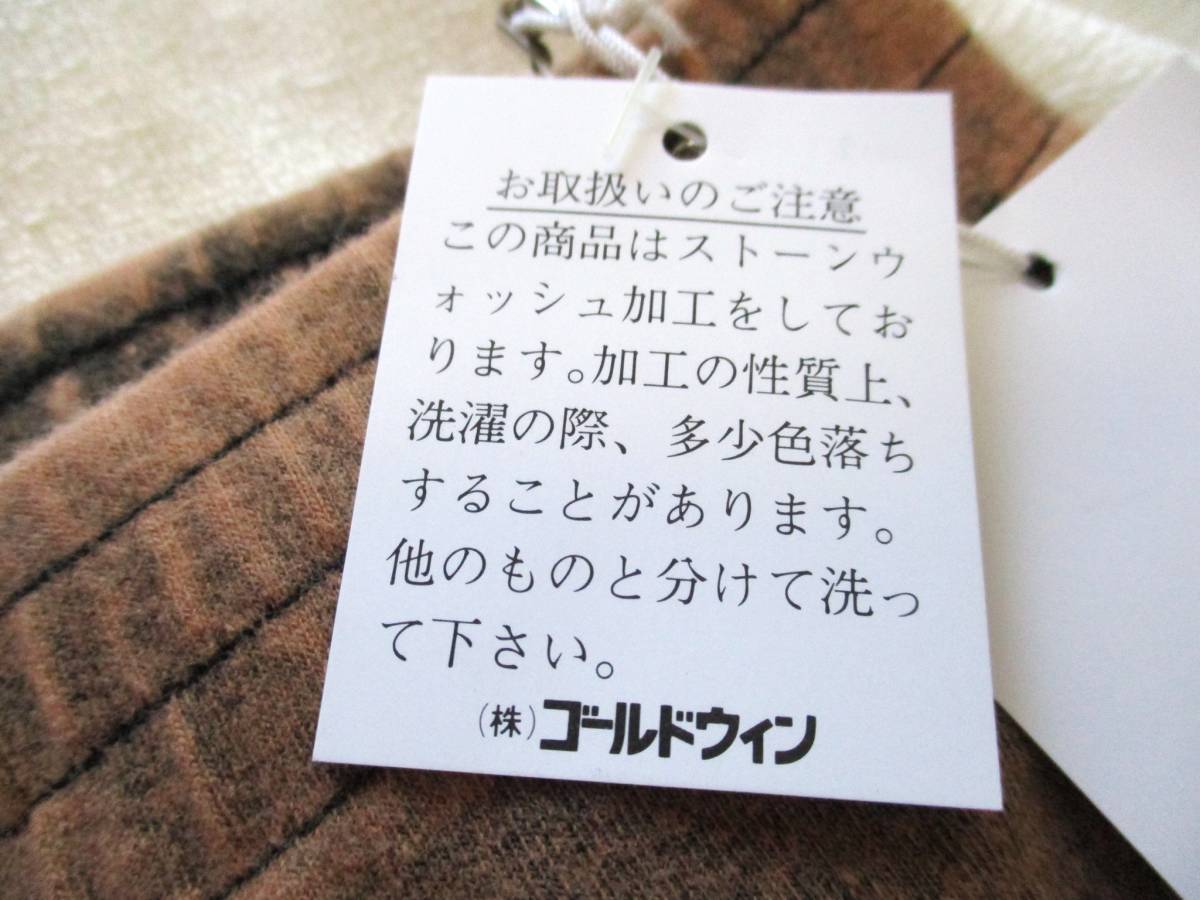 お取扱いのご注意
この商品はストーンウ
ォッシュ加工をしてお
ります。加工の性質上、
洗濯の際、多少色落ち
することがあります。
他のものと分けて洗っ
て下さい。
(株)ゴールドウィン